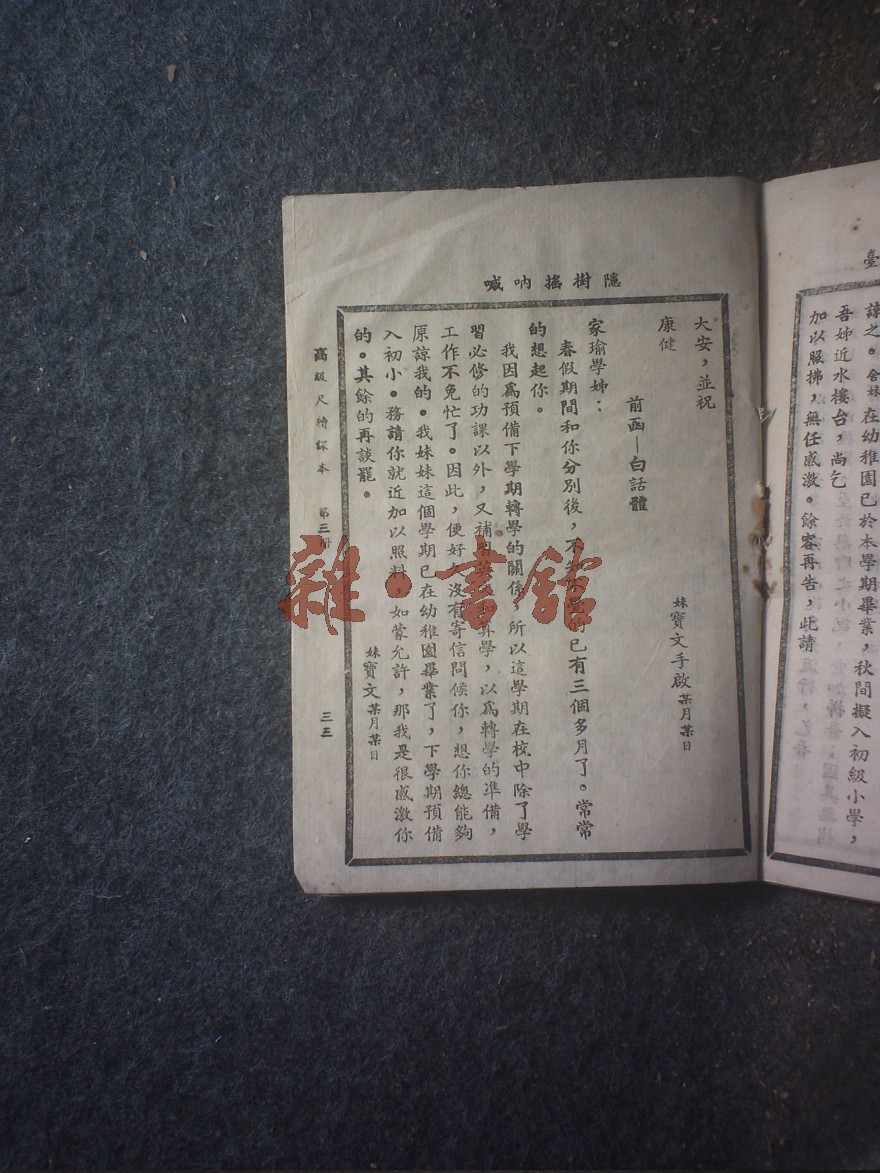 臺
諒之。舍妹在幼稚園已於本學期畢業，秋間擬入初級小學，
吾姊近水樓台，尚乞
加以照拂，無任感激。餘容再告，此請
隱樹搖吶喊
大安，並祝
康健
妹寶文手啟某月某日
前函—白話體
家瑜學姊：
春假期間和你分別後，不已有三個多月了。常常
的想起你。
我因爲預備下學期轉學的關係，所以這學期在校中除了學
習必修的功課以外，又補習算學，以爲轉學的準備，
工作不免忙了。因此，便好久沒有寄信問候你，想你總能夠
原諒我的。我妹妹這個學期已在幼稚園畢業了，下學期預備
入初小。務請你就近加以照料，如蒙允許，那我是很感激你
的。其餘的再談罷。
妹寶文某月某日
高級尺牘課本 第三冊 三三
雜·書館